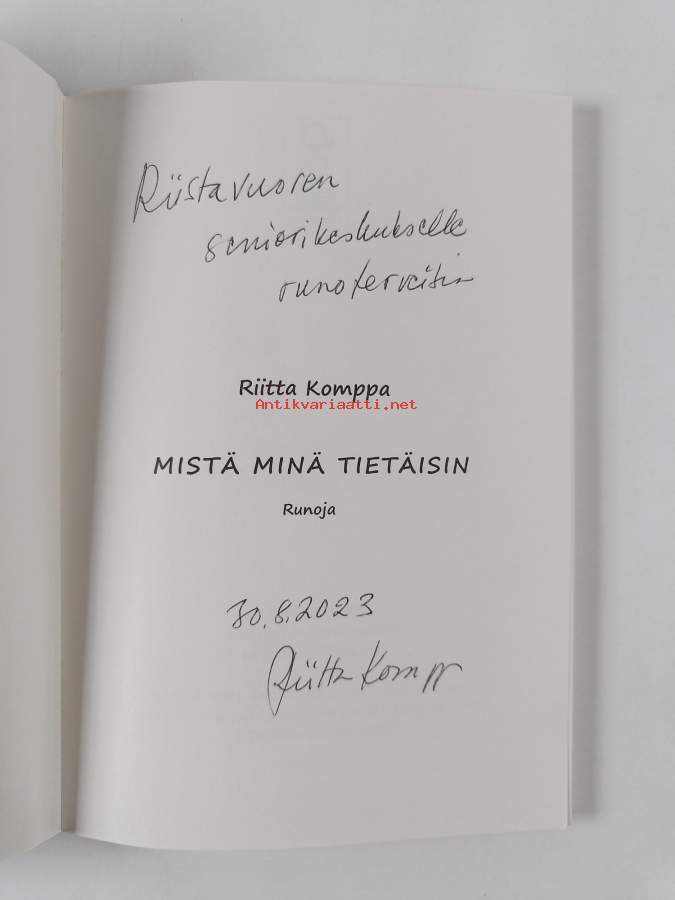 Riistavuoren
seniorikeskukselle
runoterveisin
Riitta Komppa
Antikvariaatti.net
MISTÄ MINÄ TIETÄISIN
Runoja
30.8.2023
Riitta Komppa